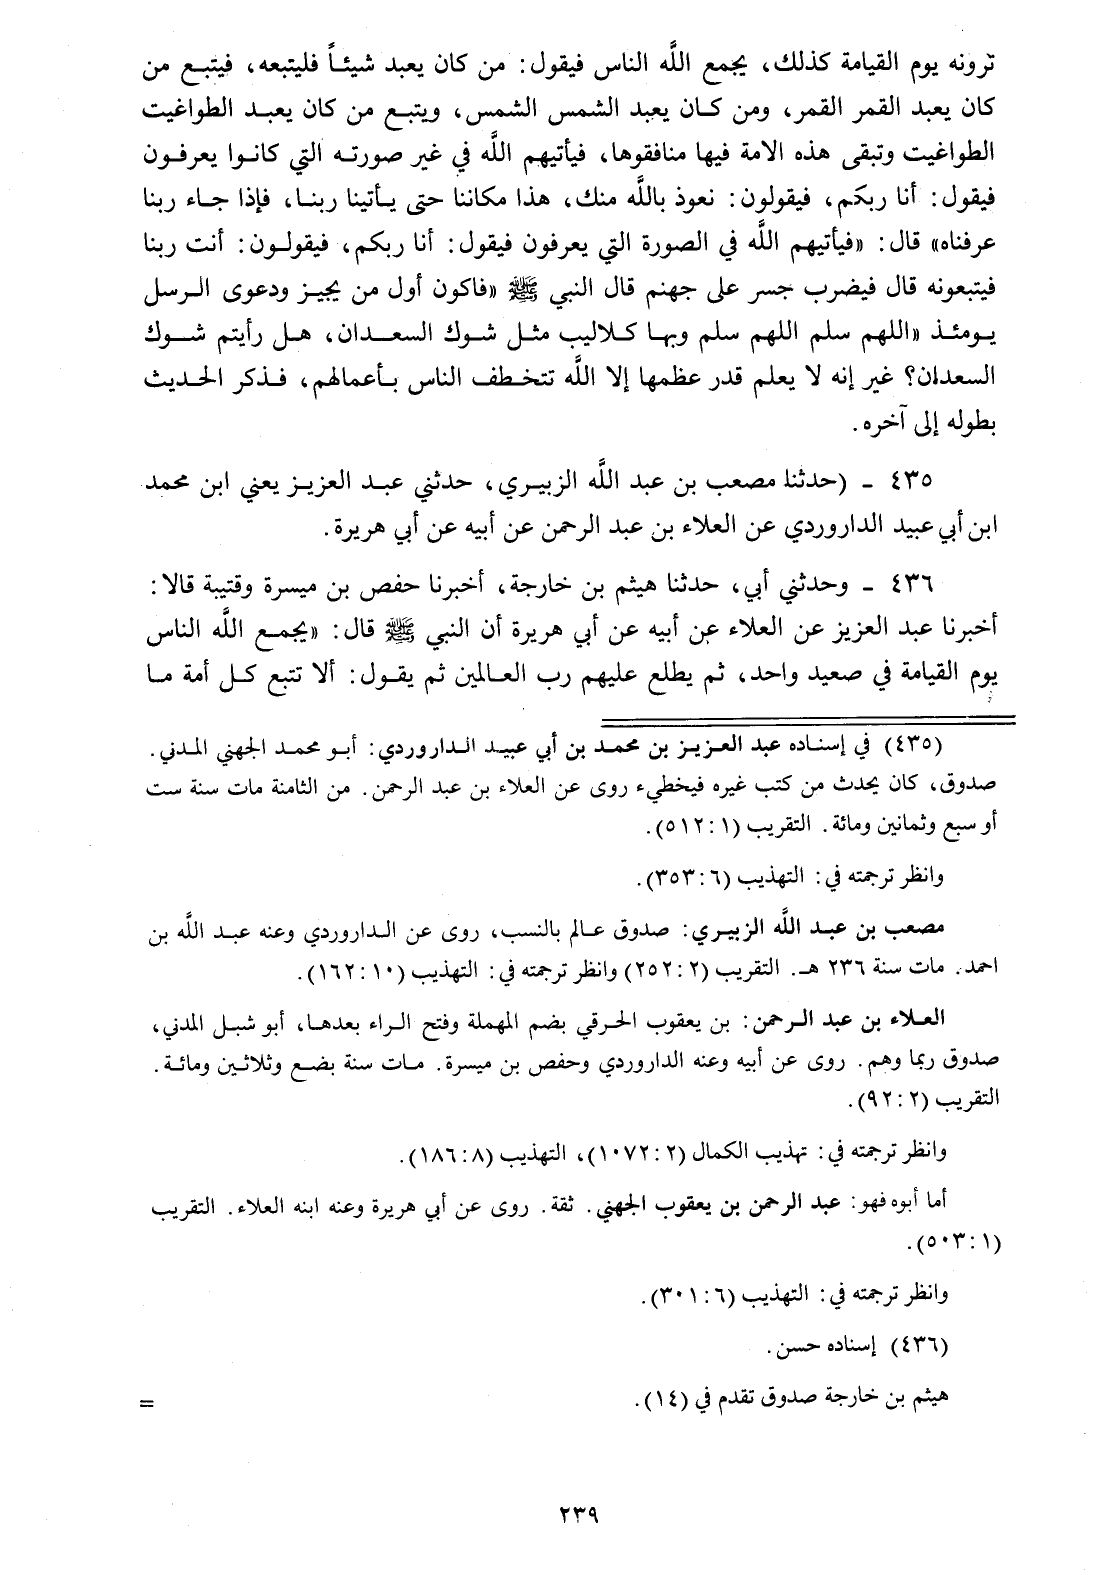 ترونه يوم القيامة كذلك، يجمع اللَّه الناس فيقول: من كان يعبد شيئاً فليتبعه، فيتبع من
كان يعبد القمر القمر، ومن كان يعبد الشمس الشمس، ويتبع من كان يعبد الطواغيت
الطواغيت وتبقى هذه الامة فيها منافقوها، فيأتيهم اللَّه في غير صورته التي كانوا يعرفون
فيقول: أنا ربكم، فيقولون: نعوذ باللَّه منك، هذا مكاننا حتى يأتينا ربنا، فإذا جاء ربنا
عرفناه» قال: «فيأتيهم اللَّه في الصورة التي يعرفون فيقول: أنا ربكم، فيقولون: أنت ربنا
فيتبعونه قال فيضرب جسر على جهنم قال النبي ﷺ «فاكون أول من يجيز ودعوى الرسل
يومئذ «اللهم سلم اللهم سلم وبها كلاليب مثل شوك السعدان، هل رأيتم شوك
السعدان؟ غير إنه لا يعلم قدر عظمها إلا اللَّه تتخطف الناس بأعمالهم، فذكر الحديث
بطوله إلى آخره.
٤٣٥ - (حدثنا مصعب بن عبد اللَّه الزبيري، حدثني عبد العزيز يعني ابن محمد
ابن أبي عبيد الداروردي عن العلاء بن عبد الرحمن عن أبيه عن أبي هريرة.
٤٣٦ - وحدثني أبي، حدثنا هيثم بن خارجة، أخبرنا حفص بن ميسرة وقتيبة قالا:
أخبرنا عبد العزيز عن العلاء عن أبيه عن أبي هريرة أن النبي ﷺ قال: «يجمع اللَّه الناس
يوم القيامة في صعيد واحد، ثم يطلع عليهم رب العالمين ثم يقول: ألا تتبع كل أمة ما
(٤٣٥) في إسناده عبد العزيز بن محمد بن أبي عبيد الداروردي: أبو محمد الجهني المدني.
صدوق، كان يحدث من كتب غيره فيخطيء روى عن العلاء بن عبد الرحمن. من الثامنة مات سنة ست
أو سبع وثمانين ومائة. التقريب (١: ٥١٢).
وانظر ترجمته في: التهذيب (٦: ٣٥٣).
مصعب بن عبد اللَّه الزبيري: صدوق عالم بالنسب، روى عن الداروردي وعنه عبد اللَّه بن
احمد. مات سنة ٢٣٦ هـ. التقريب (٢: ٢٥٢) وانظر ترجمته في: التهذيب (١٠: ١٦٢).
العلاء بن عبد الرحمن: بن يعقوب الحرقي بضم المهملة وفتح الراء بعدها، أبو شبل المدني،
صدوق ربما وهم. روى عن أبيه وعنه الداروردي وحفص بن ميسرة. مات سنة بضع وثلاثين ومائة.
التقريب (٢: ٩٢).
وانظر ترجمته في: تهذيب الكمال (٢: ١٠٧٢)، التهذيب (٨: ١٨٦).
أما أبوه فهو: عبد الرحمن بن يعقوب الجهني. ثقة. روى عن أبي هريرة وعنه ابنه العلاء. التقريب
(١: ٥٠٣).
وانظر ترجمته في: التهذيب (٦: ٣٠١).
(٤٣٦) إسناده حسن.
هيثم بن خارجة صدوق تقدم في (١٤). =
٢٣٩